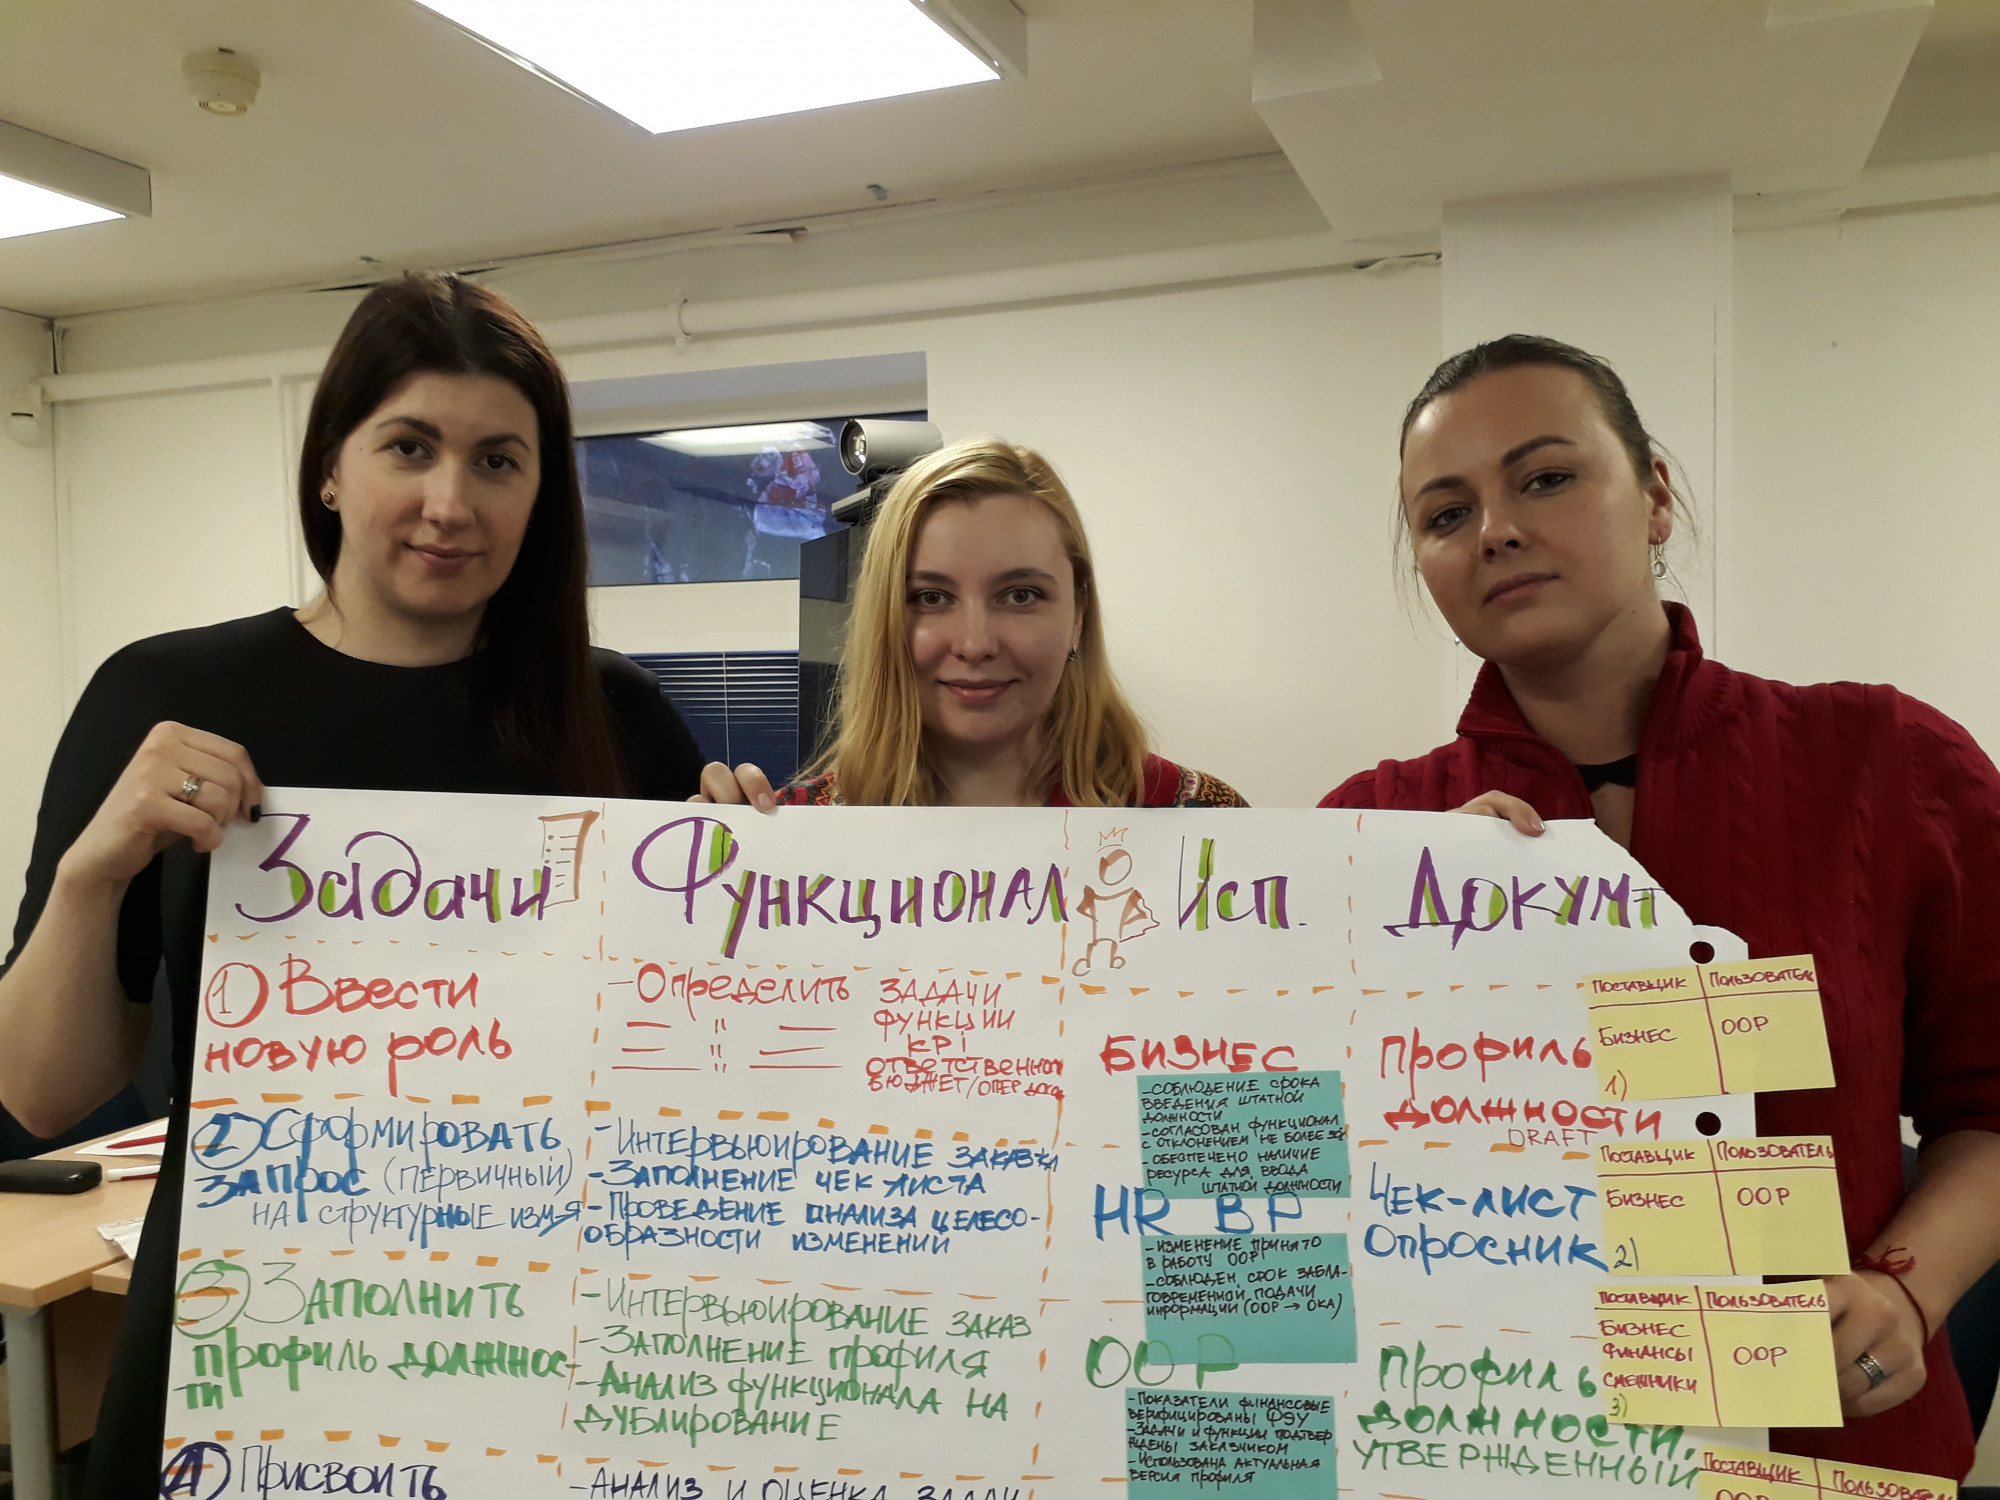 Задачи
Функционал
Исп.
Докум-т
1 Ввести
новую роль
- Определить задачи
— " — функции
— " — KPI
ответственност
бюджет/опер дохо
Бизнес
Профиль
должности
DRAFT
- Соблюдение срока
введения штатной
должности
- Согласован функционал
с отклонением не более
- Обеспечено наличие
ресурса для ввода
штатной должности
Поставщик Пользователь
Бизнес ООР
1)
2 Сформировать
запрос (первичный)
на структурные изм-я
- Интервьюирование
- Заполнение чек листа
- Проведение анализа целесо-
образности изменений
HR BP
Чек-лист
Опросник
- Изменение принято
в работу ООР
- Соблюден срок забла-
говременной подачи
информации (ООР → ОКА)
Поставщик Пользователь
Бизнес ООР
2)
3 Заполнить
профиль должнос-
ти
- Интервьюирование заказ
- Заполнение профиля
- Анализ функционала на
дублирование
ООР
Профиль
должности.
утвержденный
- Показатели финансовые
верифицированы ФЭУ
- Задачи и функции подтвер
ждены заказчиком
- Использована актуальная
версия профиля
Поставщик Пользователь
Бизнес
Финансы
Смежники
ООР
3)
4 Присвоить
- Анализ и оценка задач
Поставщик Пользователь
ООР